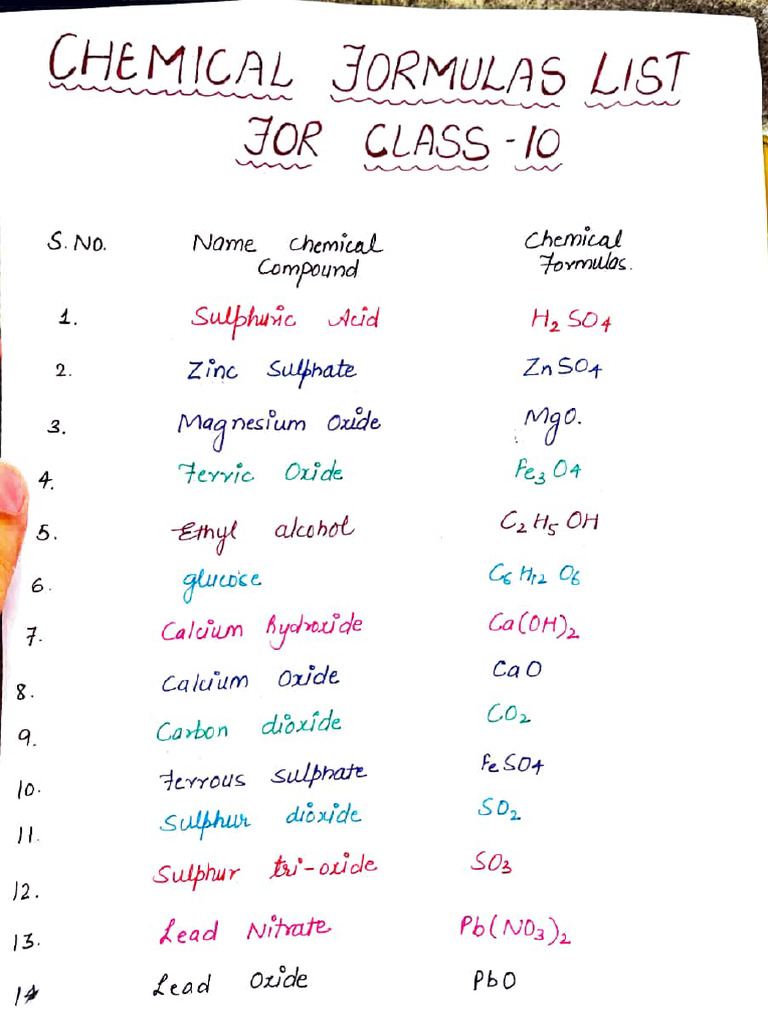 CHEMICAL FORMULAS LIST
FOR CLASS-10
S. No. Name Chemical Compound Chemical Formulas.
1. Sulphuric Acid H2SO4
2. Zinc Sulphate ZnSO4
3. Magnesium Oxide MgO.
4. Ferric Oxide Fe3O4
5. Ethyl alcohol C2H5OH
6. glucose C6H12O6
7. Calcium hydroxide Ca(OH)2
8. Calcium Oxide CaO
9. Carbon dioxide CO2
10. Ferrous sulphate FeSO4
11. Sulphur dioxide SO2
12. Sulphur tri-oxide SO3
13. Lead Nitrate Pb(NO3)2
14 Lead Oxide PbO